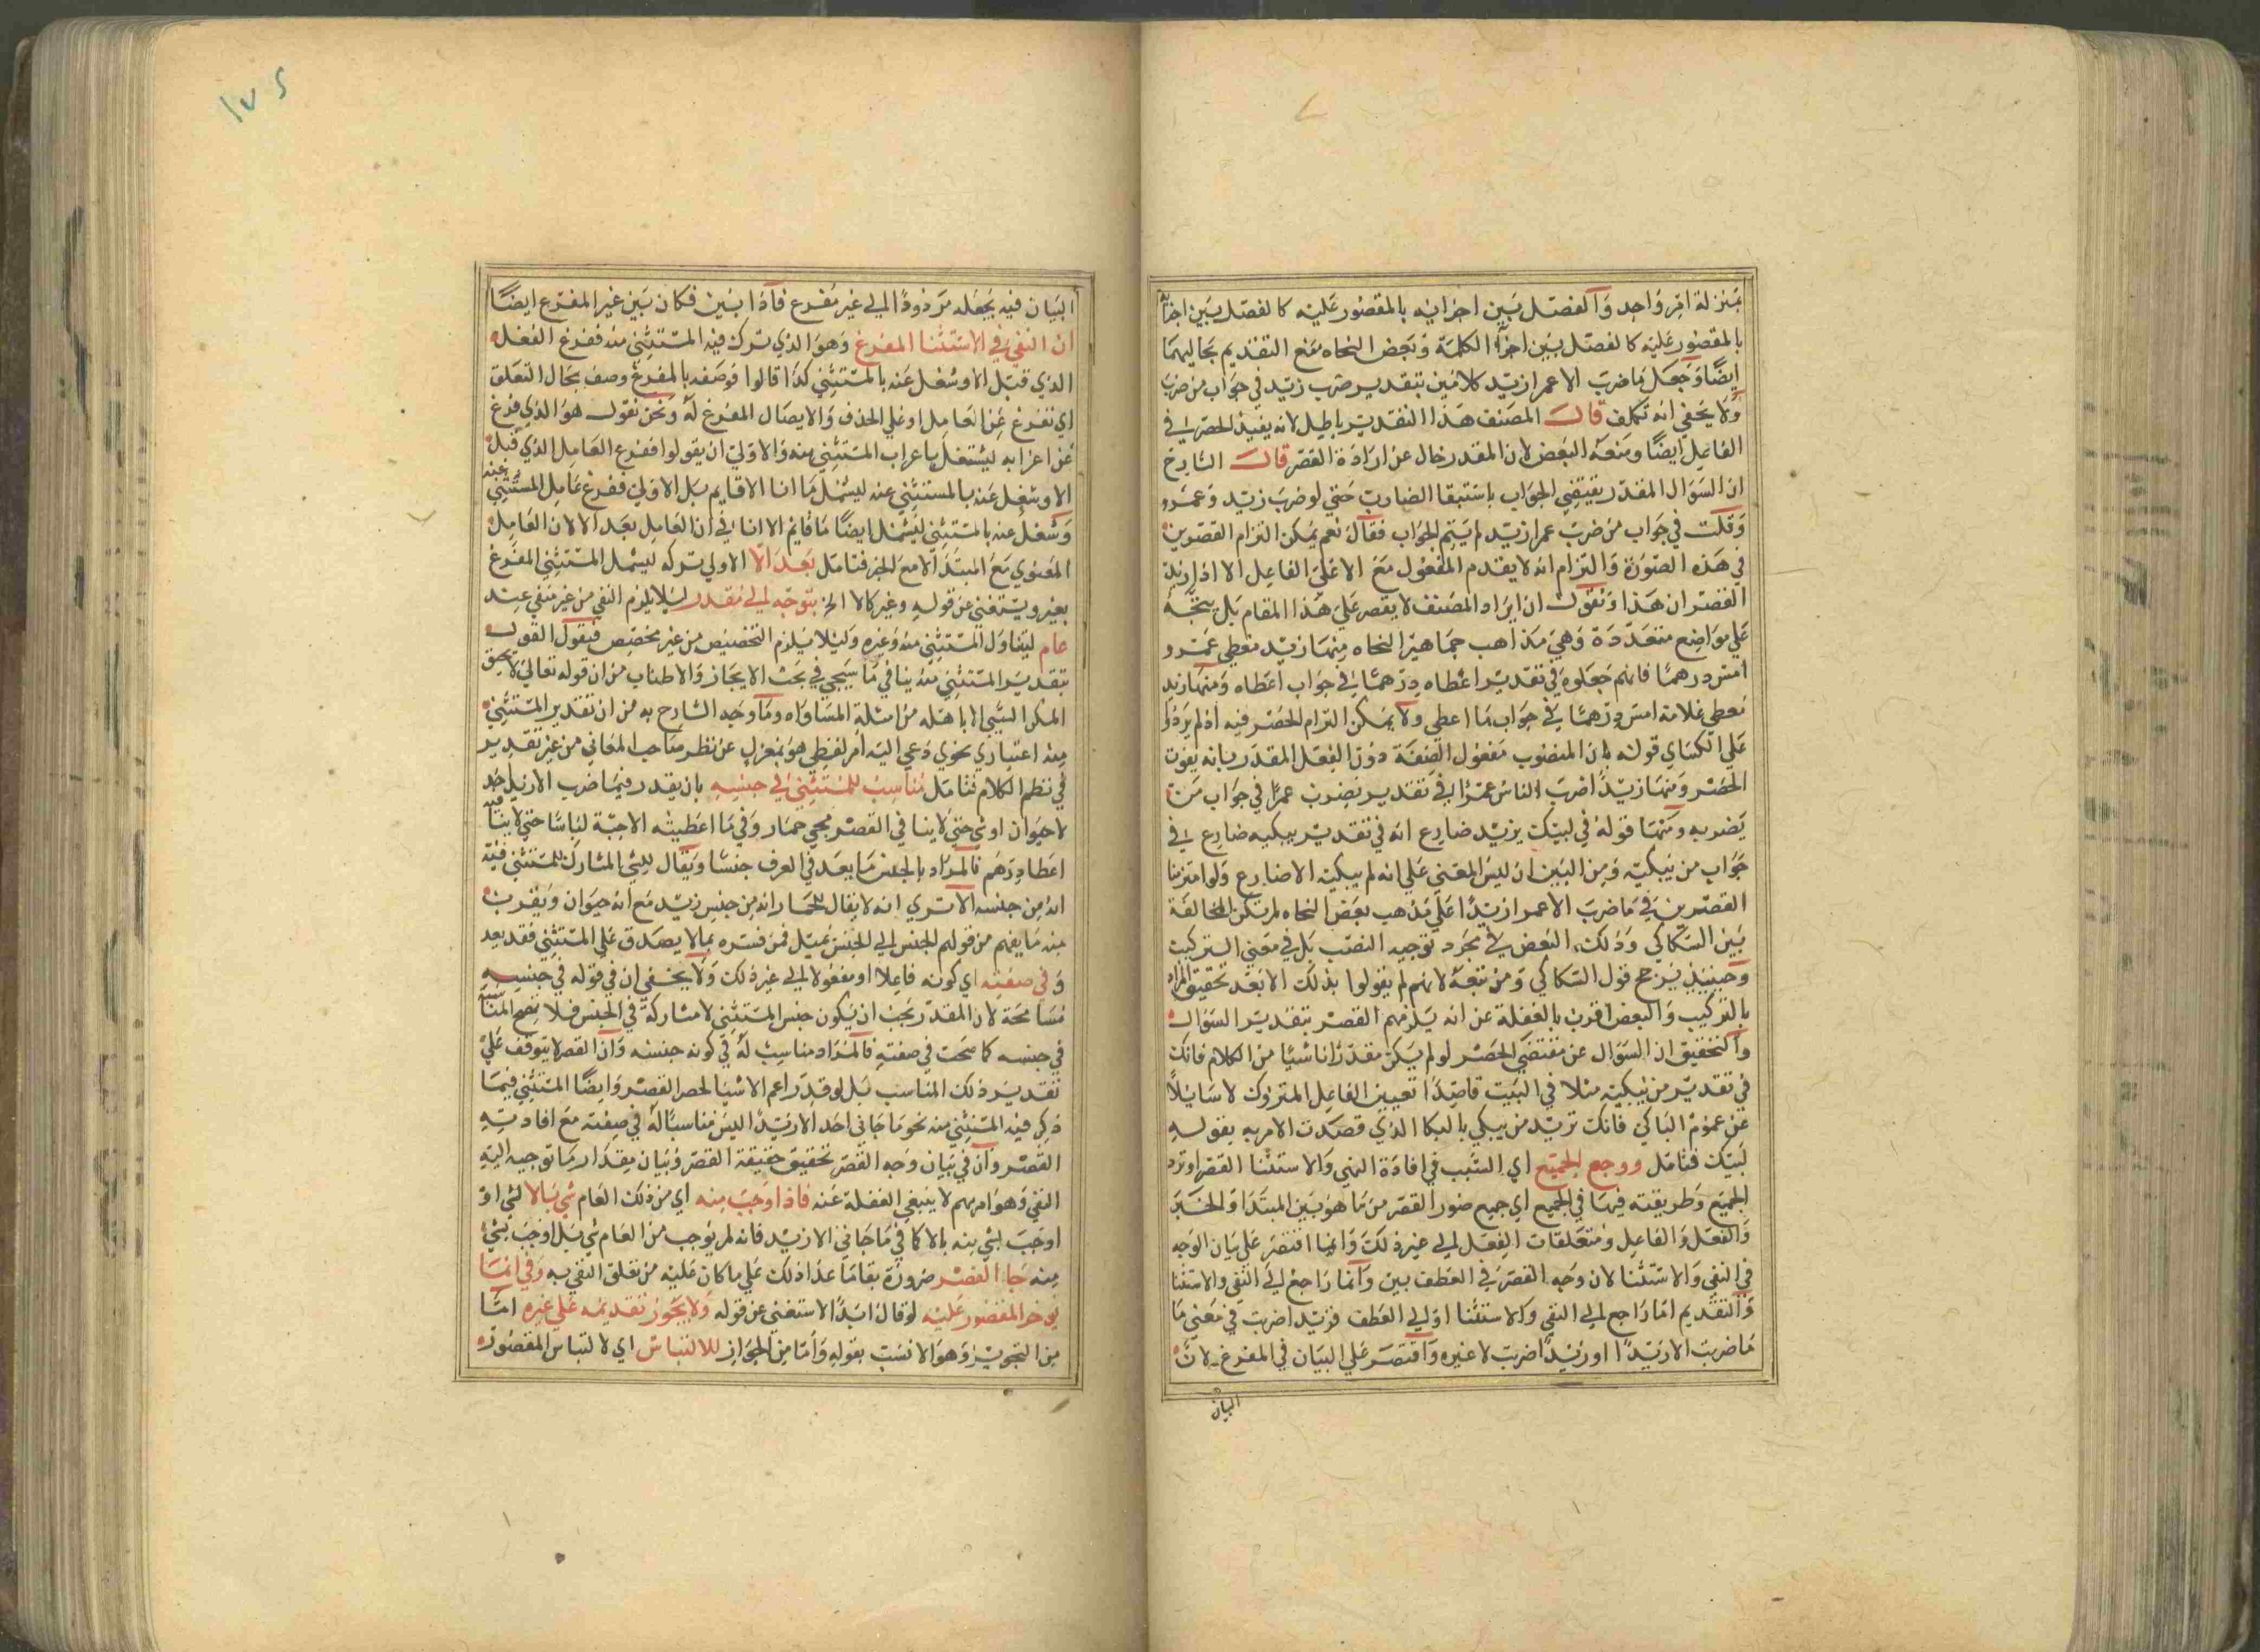 بمنزلة امر واحد والفصل بين اجزائه بالمقصور عليه كالفصل بين اجزائه
بالمقصور عليه كالفصل بين اجزآ الكلمة وبعض النحاه منع التقديم بحاليهما
ايضا وجعل ما ضرب الا عمرا زيد كلامين بتقدير ضرب زيد في جواب من ضرب
ولا يخفي انه تكلف قال المصنف هذا التقدير باطيل لانه يفيد الحصر في
الفاعل ايضا ومنعه البعض لان المقدر خال عن ارادة القصر قال الشارح
ان السؤال المقدر يقتضي الجواب باستبقا الضارب حتي لو ضرب زيد وعمرو
وقلت في جواب من ضرب عمرا زيد لم يتم الجواب فقال نعم يمكن التزام القصرين
في هذه الصورة والتزام انه لا يقدم المفعول مع الا علي الفاعل الا اذا اريد
القصران هذا ونقول ان ايراد المصنف لا يقصر علي هذا المقام بل يتجه
علي مواضع متعددة وهي مذاهب جماهير النحاه منها زيد معطي عمرو
امس درهما فانهم جعلوه في تقدير اعطاه درهما في جواب اعطاه ومنها زيد
معطي غلامه امس درهما في جواب ما اعطي ولا يمكن التزام الحصر فيه اذ لم يرد
علي الكساي قوله بان المنصوب مفعول الصفة دون الفعل المقدر بانه يفوت
الحصر ومنها زيدا ضرب الناس عمرا في تقدير يضرب عمرا في جواب من
يضربه ومنها قوله في ليبك يزيد ضارع انه في تقدير يبكيه ضارع في
جواب من يبكيه ومن البين ان ليس المعني علي انه لم يبكيه الا ضارع ولو التزمنا
القصرين في ما ضرب الا عمرا زيدا علي مذهب بعض النحاه لم يكن المخالفة
بين السكاكي وذلك البعض في مجرد توجيه النصب بل في معني التركيب
وحينيذ يرجح قول السكاكي ومن تبعه لانهم لم يقولوا بذلك الا بعد تحقيق المراد
بالتركيب والبعض اقرب بالغفلة عن انه يلزمهم القصر بتقدير السؤال
والتحقيق ان السؤال عن مقتضي الحصر لو لم يكن مقدرا ناشيا من الكلام فانك
في تقدير من يبكيه مثلا في البيت قاصدا تعيين الفاعل المتروك لا سايلا
عن عموم الباكي فانك تريد من يبكي بالبكا الذي قصدت الامر به بقوله
ليبك فتامل ووجع الجميع اي السبب في افادة النفي والاستثنا القصر اوترد
الجميع وطريقته فيها في الجميع اي جميع صور القصر من ما هو بين المبتدا والخبر
والفعل والفاعل ومتعلقات الفعل الي غير ذلك وانما اقتصر علي بيان الوجه
في النفي والاستثنا لان وجه القصر في العطف بين وانما راجع الي النفي والاستثنا
والتقديم اما راجع الي النفي والاستثنا او الي العطف فزيدا ضربت في معني ما
ما ضربت الا زيدا او زيدا ضربت لا غيره واقتصر علي البيان في المفرغ لان
البيان
١٧٥
البيان فيه يجعله مردودا الي غير مفرغ فاذا بين فكان بين غير المفرغ ايضا
ان النفي في الاستثنا المفرغ وهو الذي ترك فيه المستثني منه ففرغ الفعل
الذي قبل الا وشغل عنه بالمستثني كذا قالوا فوصفه بالمفرغ وصف بحال التعلق
اي تفرغ عن العامل او علي الحذف والايصال المفرغ له ونحن نقول هو الذي فرغ
عن اعرابه ليشتغل باعراب المستثني منه والاولي ان يقولوا ففرغ العامل الذي قبل
الا وشغل عنه بالمستثني عنه ليشمل ما انا الا قايم بل الاولي ففرغ عامل المستثني عنه
وشغل عنه بالمستثني ليشمل ايضا ما قايم الا انا في ان العامل بعد الا لان العامل
المعنوي مع المبتدا لا مع الخبر فتامل بعد الا الاولي تركه ليشمل المستثني المفرغ
بغير ويستغني عن قوله وغير كالا الخ بتوجه الي مقدر ليلا يلزم النفي من غير منفي عنه
عام ليتناول المستثني منه وغيره وليلا يلزم التخصيص من غير مخصص فنقول القول
بتقدير المستثني منه ينافي ما سيجي في بحث الايجاز والاطناب من ان قوله تعالي لا يحيق
المكر السيي الا باهله من امثلة المساواه وما وجه الشارح به من ان تقدير المستثني
منه اعتباري نحوي دعي اليه امر لفظي هو بمعزل عن نظر صاحب المعاني من غير تقدير
في نظم الكلام فتامل مناسب للمستثني في جنسه بان يقدر فيما ضرب الا زيد احد
لا حيوان او شي حتي لا ينافي القصر مجي حمار وفي ما اعطيته الا جبة لباسا حتي لا ينافيه
اعطا درهم فالمراد بالجنس ما يعد في العرف جنسا ويقال للشي المشارك للمستثني فيه
انه من جنسه الا تري انه لا يقال للحمار انه من جنس زيد مع انه حيوان ويقرب
منه ما يفهم من قولهم الجنس الي الجنس يميل فمن فسره بما لا يصدق علي المستثني فقد بعد
وفي صفته اي كونه فاعلا او مفعولا الي غير ذلك ولا يخفي ان في قوله في جنسه
مسامحة لان المقدر يجب ان يكون جنس المستثني لا مشاركه في الجنس فلا تصح المناسبة
في جنسه كما صحت في صفته فالمراد مناسب له في كونه جنسه وان القصر لا يتوقف علي
تقدير ذلك المناسب بل لو قدر اعم الاشيا لحصر القصر وايضا المستثني فيما
ذكر فيه المستثني منه نحو ما جاني احد الا زيدا ليس مناسبا له في صفته مع افادته
القصر وان في بيان وجه القصر تحقيق حقيقة القصر وبيان مقدار ما توجيه اليه
النفي وهو امر مهم لا ينبغي الغفلة عنه فاذا اوجب منه اي من ذلك العام شي بالا لشي او
اوجب لشي منه بالا كما في ما جاني الا زيد فانه لم يوجب من العام شي بل اوجب لشي
منه جا القصر ضرورة بقا ما عدا ذلك علي ما كان عليه من تعلق النفي به وفي انما
يوخر المقصور عليه لو قال ابدا لاستغني عن قوله ولا يجوز تقديمه علي غيره اما
من التجويز وهو الانسب بقوله واما من الجواز للالتباس اي لالتباس المقصور